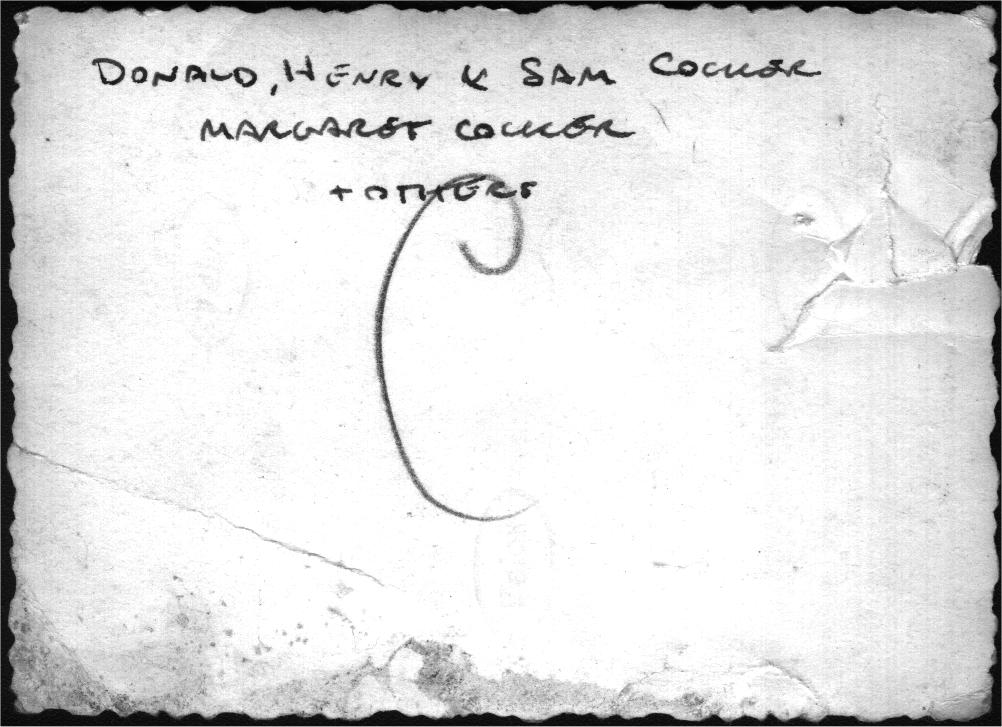 DONALD, HENRY & SAM COCKER
MARGARET COCKER
+ OTHERS
C